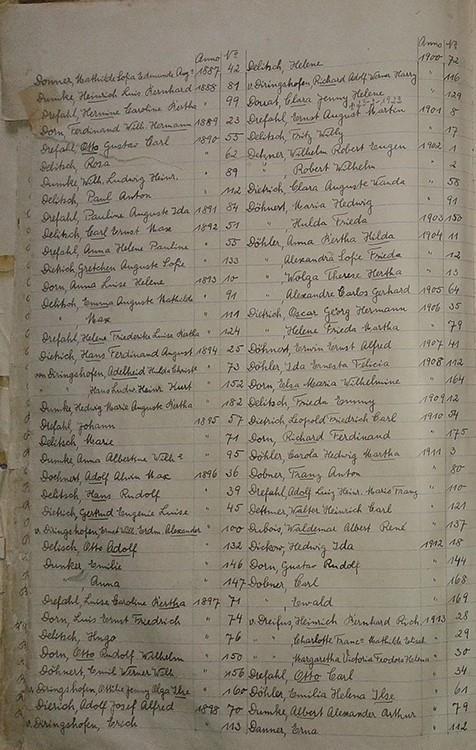 Anno No
Donner, Mathilde Sofia Edmunde Aug. 1887 42
Dumke, Heinrich Luis Bernhard 1888 81
Drefahl, Hermine Caroline Bertha " 99
Dorn, Ferdinand Wilh. Hermann 1889 23
Drefahl, Otto Gustav Carl 1890 53
Delitsch, Rosa " 62
Dumke, Wilh. Ludwig Heinr. " 89
Delitsch, Paul Anton " 112
Drefahl, Pauline Auguste Ida 1891 84
Delitsch, Carl Ernst Max 1892 51
Drefahl, Anna Helene Pauline " 55
Dietrich, Gretchen Auguste Sofie " 133
Dorn, Anna Luise Helene 1893 10
Delitsch, Emma Auguste Mathilde " 91
" Max " 111
Drefahl, Helene Friederike Luise Bertha " 124
Dietrich, Hans Ferdinand August 1894 25
von Diringshofen, Adelheid Hilda " 73
" Hans Ludw. Heinr. Kurt " 152
Dumke, Hedwig Marie Auguste Bertha " 182
Drefahl, Johann 1895 57
Delitsch, Marie " 71
Dumke Anna Albertine Wilh. " 95
Doehnert, Adolf Alwin Max 1896 36
Delitsch, Hans Rudolf " 39
Dietrich, Gertrud Eugenie Luise " 45
v. Diringshofen, Ernst Wilh. Erdm. Alexander " 100
Delitsch, Otto Adolf " 132
Dumke, Emilie " 146
" Anna " 147
Drefahl, Luise Caroline Bertha 1897 71
Dorn, Luis Ernst Friedrich " 74
Delitsch, Hugo " 76
Dorn, Otto Rudolf Wilhelm " 150
Döhnert, Emil Werner Wilh. " 156
v. Diringshofen, Jenny Olga Ilse " 160
Dierich, Adolf Josef Alfred 1898 70
v. Diringshofen, Erich " 113
Anno No
Delitsch, Helene 1900 72
v. Diringshofen, Richard Adolf Werner Harry " 116
Dorat, Clara Jenny Helene " 129
Drefahl, Ernst August Martin 1901 8
Delitsch, Fritz Willy " 17
Dehmer, Wilhelm Robert Eugen 1902 1
" Robert Wilhelm " 2
Dietrich, Clara Auguste Wanda " 58
Döhnert, Maria Hedwig " 91
" Hulda Frieda 1903 150
Döhler, Anna Bertha Hilda 1904 11
" Alexandra Sofie Frieda " 12
" Wolga Therese Hertha " 13
" Alexandre Carlos Gerhard 1905 64
Dietrich, Oscar Georg Hermann 1906 35
" Helene Frieda Martha " 79
Döhnert, Erwin Ernst Alfred 1907 41
Döhler, Ida Ernesta Felicia 1908 112
Dorn, Elza Maria Wilhelmine " 164
Delitsch, Frieda Emmy 1909 12
Dietrich, Leopold Friedrich Carl 1910 54
Dorn, Richard Ferdinand " 175
Döhler, Carola Hedwig Martha 1911 3
Dobner, Franz Anton " 80
Drefahl, Adolf Luiz Heinr. Mario Franz " 110
Dettmer, Walter Heinrich Carl " 121
Dubois, Waldemar Albert René " 137
Dickow, Hedwig Ida 1912 18
Dorn, Gustav Rudolf " 144
Dobner, Carl " 168
" Ewald " 169
v. Dreifus, Heinrich Bernhard Rich. 1913 28
" " Charlotte Franc. Mathilde " 29
" " Margaretha Victoria Teodora Helena " 30
Drefahl, Otto Carl " 34
Döhler, Emilia Helena Ilse " 61
Dumke, Albert Alexander Arthur " 79
Danner, Erna " 112